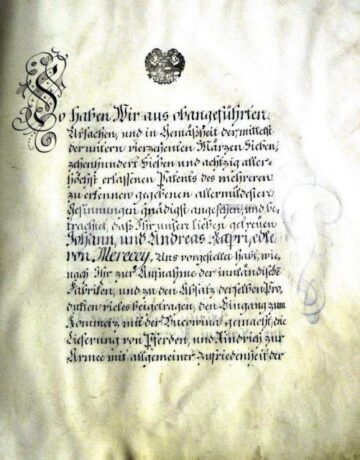 So haben Wir aus obangeführten
Ursachen, und in Gemäßheit der mittelst
der untern vierzehenten Märzen Sieben
zehenhundert Sieben und achtzig aller-
höchst erlassenen Patents des mehreren
zu erkennen gegebenen allermildesten
Gesinnungen gnädigst angesehen, und be
trachtet, daß Ihr unser lieben getreuen
Johann, und Andreas Kapri, edle
von Merecey, Uns vorgestellet habt, wie
nach Ihr zur Aufnahme der innländische
Fabriken, und zu den Absatz derselben Pro,
dukten vieles beigetragen, den Eingang zum
Kommerz mit der Bucowina gemacht, die
Lieferung von Pferden, und Rindvieh zur
Armee mit allgemeiner Zufriedenheit der